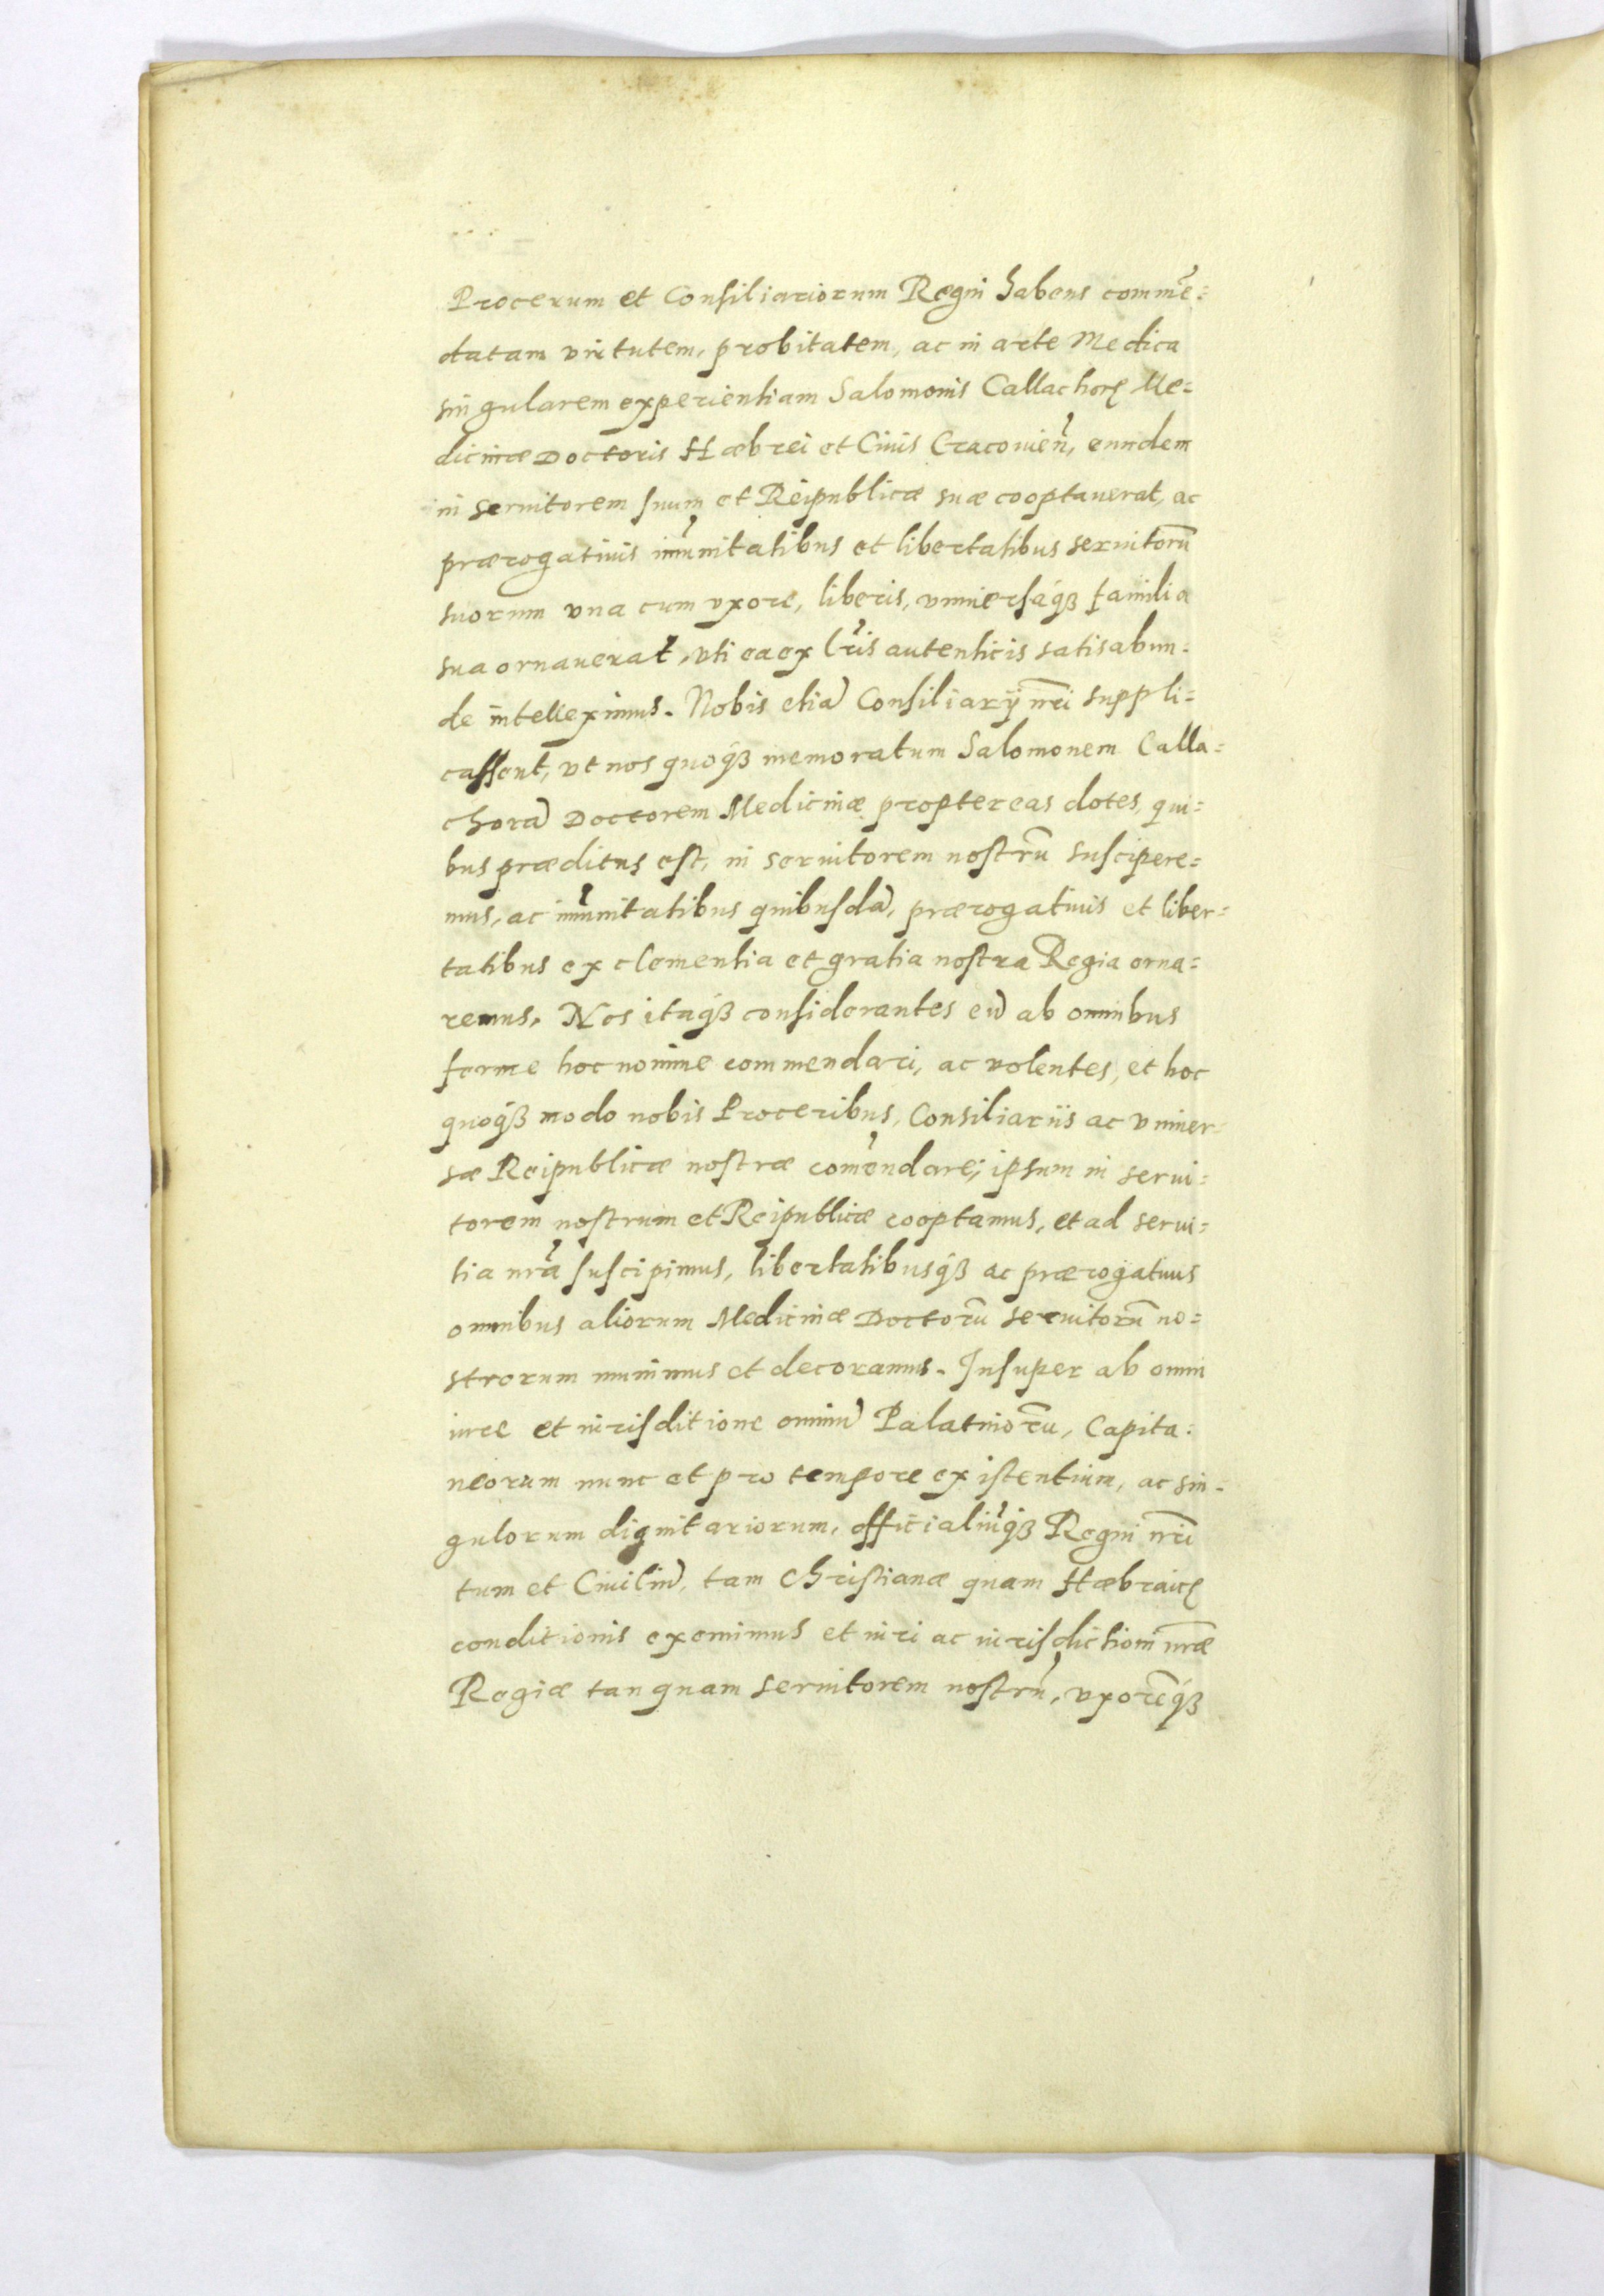 Procerum et Consiliariorum Regni habens commē=
datam virtutem, probitatem, ac in arte Medica
singularem experientiam Salomonis Callachorę Me=
dicinæ Doctoris Hæbrei et Ciuis Cracouien̄, eundem
in seruitorem suum et Reipublicæ suæ cooptauerat, ac
prærogatiuis im̄unitatibus et libertatibus seruitorū
suorum vna cum vxore, liberis, vniuersaq́ꝫ familia
sua ornauerat, vti ea ex Lr̄is autenticis satis abun=
de intelleximus. Nobis etiā Consiliarÿ nr̄i suppli=
cassent, vt nos quoq́ꝫ memoratum Salomonem Calla=
chorā Doctorem Medicinæ propter eas dotes, qui=
bus præditus est, in seruitorem nostrū suscipere=
mus, ac im̄unitatibus quibusdā, prærogatiuis et liber=
tatibus ex clementia et gratia nostra Regia orna=
remus. Nos itaq́ꝫ considerantes eū ab omnibus
ferme hoc nomine commendari, ac volentes, et hoc
quoq́ꝫ modo nobis Proceribus, Consiliariis ac vniuer=
sæ Reipublicæ nostræ com̄endare; ipsum in serui=
torem nostrum et Reipublicæ cooptamus, et ad serui=
tia nr̄a suscipimus, libertatibusq́ꝫ ac prærogatiuis
omnibus aliorum Medicinæ Doctorū seruitorū no=
strorum munimus et decoramus. Insuper ab omni
iure et iurisditione omniū Palatinorū, Capita=
neorum nunc et pro tempore existentium, ac sin=
gulorum dignitariorum, officialiūq́ꝫ Regni nr̄i
tum et Ciuiliū, tam Christianæ quam Hæbraicę
conditionis eximimus et iuri ac iurisdictioni nr̄æ
Regiæ tanquam seruitorem nostrū, vxorēq́ꝫ